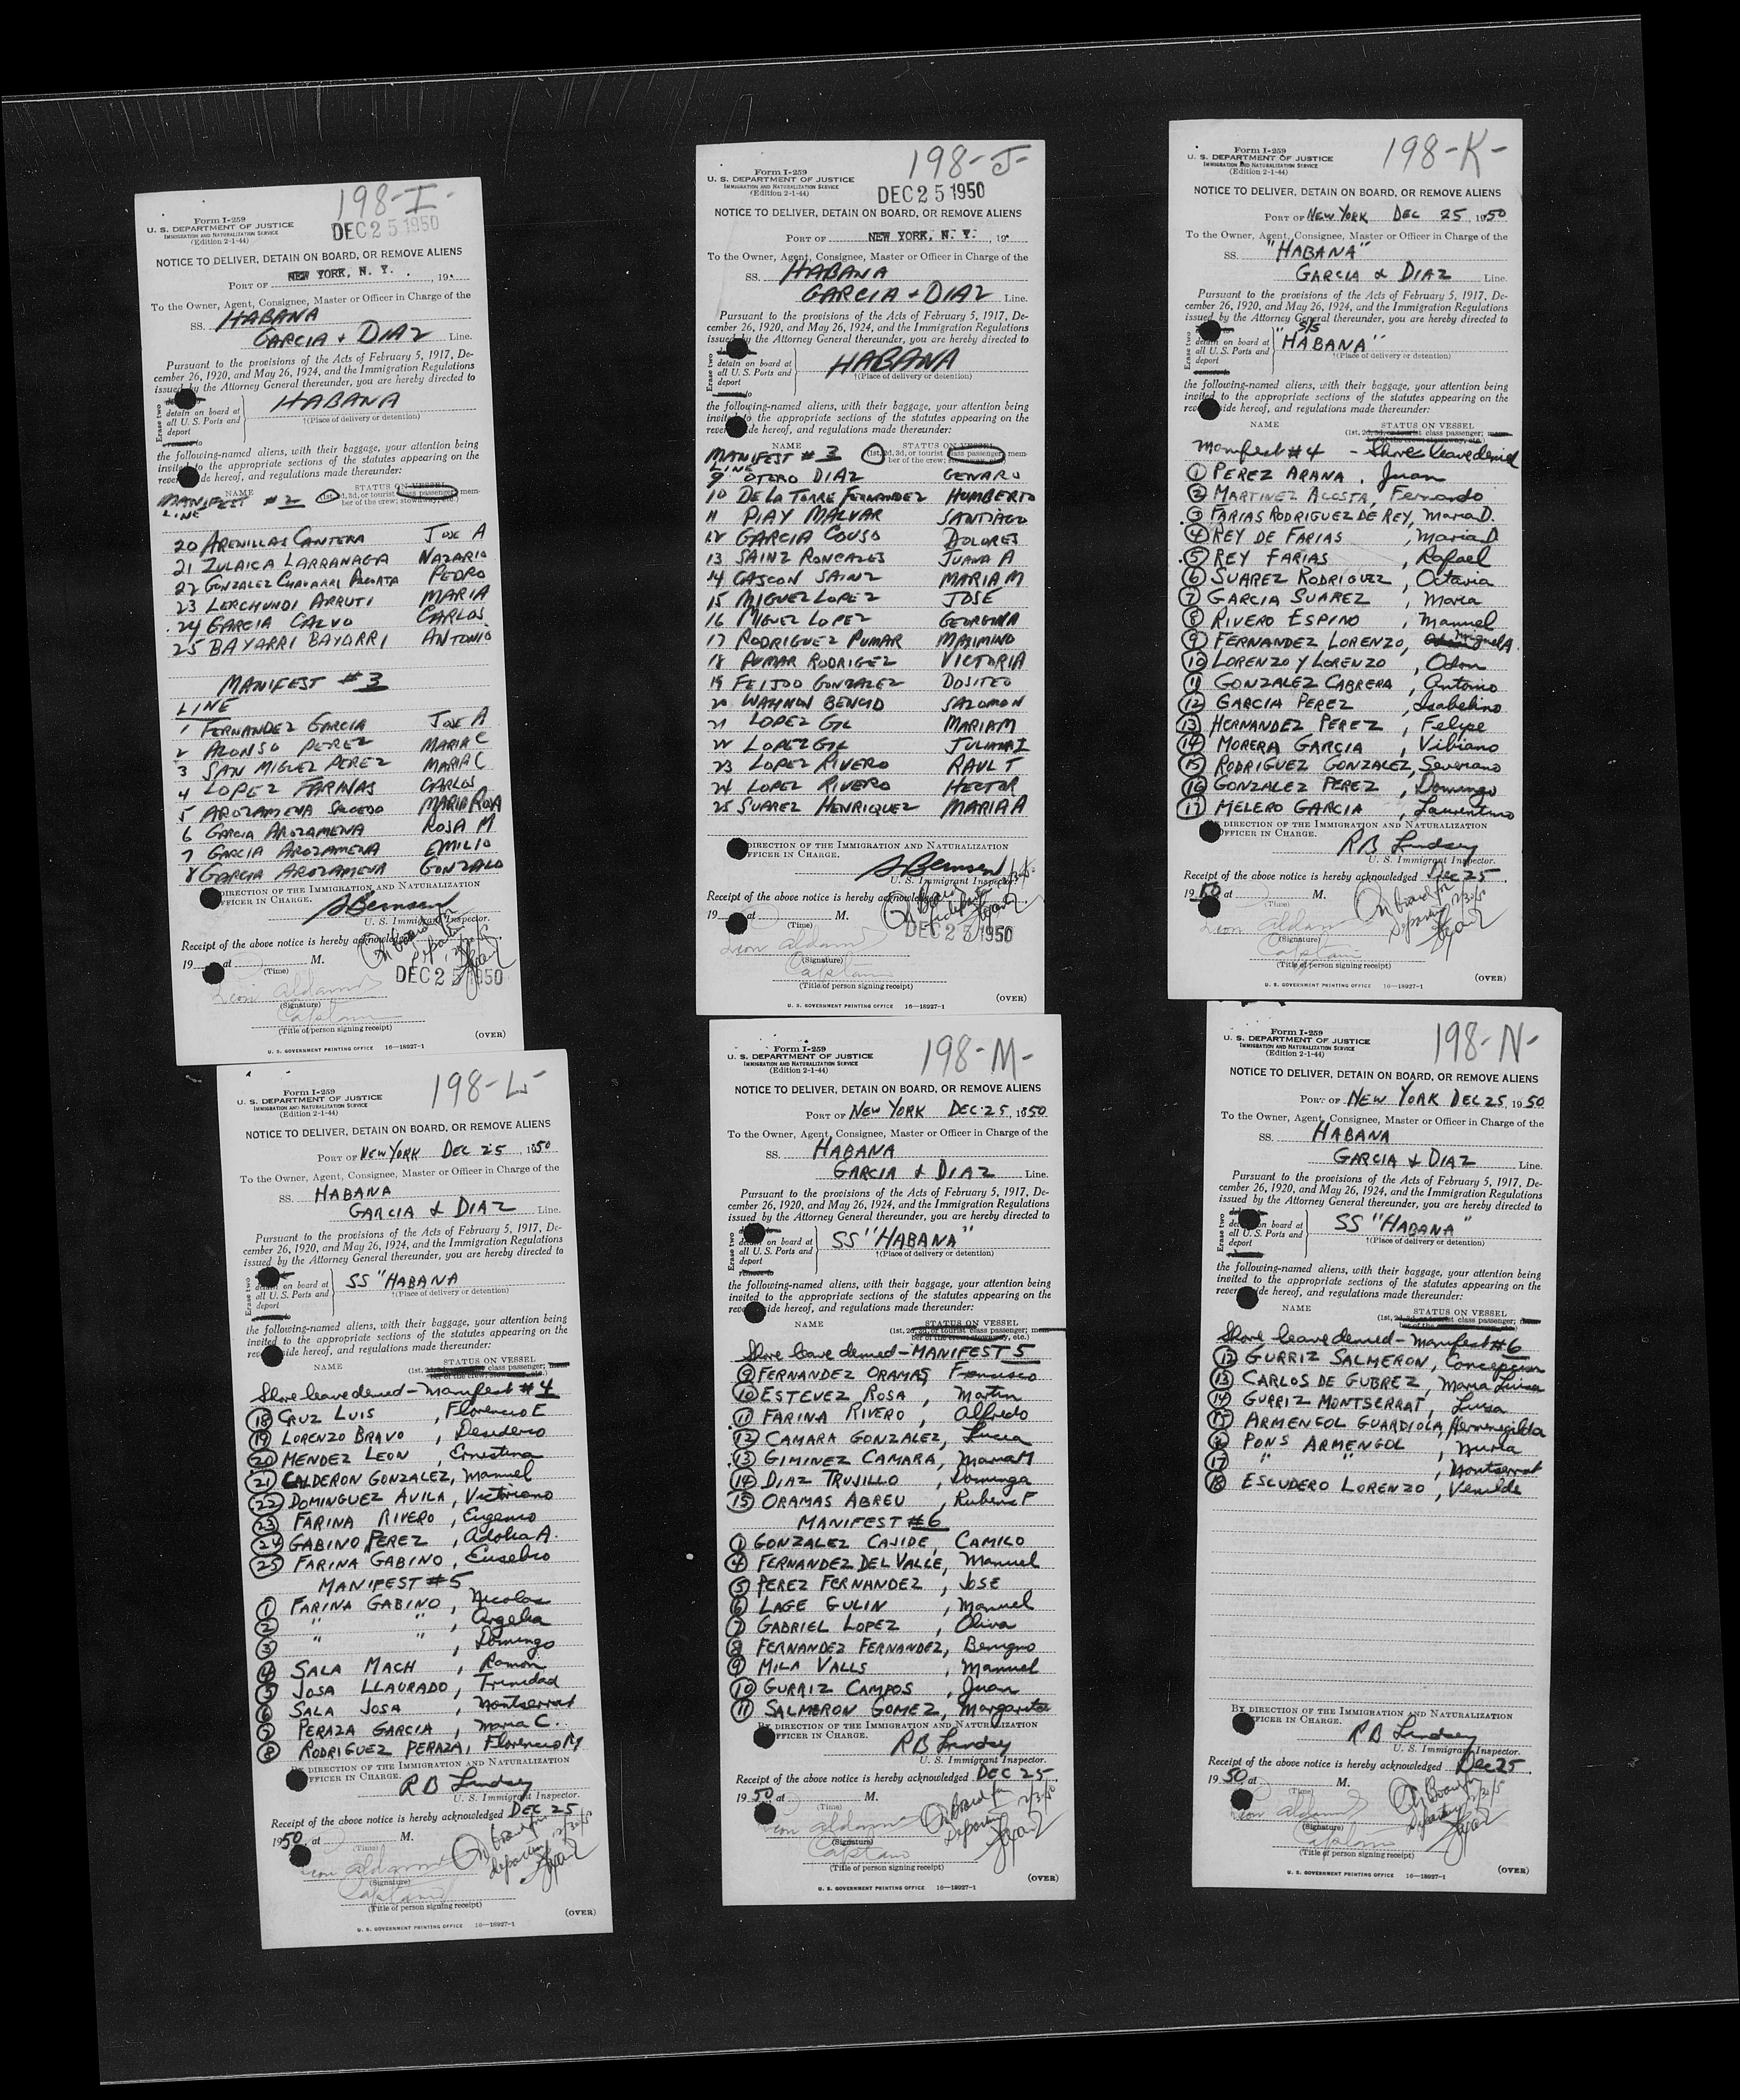 198-I-
Form I-259
U. S. DEPARTMENT OF JUSTICE
IMMIGRATION AND NATURALIZATION SERVICE
(Edition 2-1-44)
DEC 25 1950
NOTICE TO DELIVER, DETAIN ON BOARD, OR REMOVE ALIENS
PORT OF NEW YORK, N. Y. , 19
To the Owner, Agent, Consignee, Master or Officer in Charge of the
SS. HABANA
GARCIA + DIAZ Line.
Pursuant to the provisions of the Acts of February 5, 1917, De-
cember 26, 1920, and May 26, 1924, and the Immigration Regulations
issued by the Attorney General thereunder, you are hereby directed to
Erase two
detain on board at
all U. S. Ports and
deport
remove to
HABANA
†(Place of delivery or detention)
the following-named aliens, with their baggage, your attention being
invited to the appropriate sections of the statutes appearing on the
reverse side hereof, and regulations made thereunder:
NAME STATUS ON VESSEL
MANIFEST # 2 (1st, 2d, 3d, or tourist class passenger; mem-
ber of the crew; stowaway, etc.)
LINE
20 ARENILLAS CANTERA JOSE A
21 ZULAICA LARRANAGA NAZARIO
22 GONZALEZ CHAVARRI PEDRO
23 LERCHUNDI ARRUTI MARIA
24 GARCIA CALVO CARLOS
25 BAYARRI BAYARRI ANTONIO
MANIFEST # 3
LINE
1 FERNANDEZ GARCIA JOSE A
2 ALONSO PEREZ MARIA C
3 SAN MIGUEL PEREZ MARIA C
4 LOPEZ FARINAS CARLOS
5 AROZAMENA SALCEDO MARIA ROSA
6 GARCIA AROZAMENA ROSA M
7 GARCIA AROZAMENA EMILIO
8 GARCIA AROZAMENA GONZALO
DIRECTION OF THE IMMIGRATION AND NATURALIZATION
OFFICER IN CHARGE.
U. S. Immigrant Inspector.
Receipt of the above notice is hereby acknowledged
19 at M.
(Time)
DEC 25 1950
(Signature)
Captain
(Title of person signing receipt)
(OVER)
U. S. GOVERNMENT PRINTING OFFICE 16—18927-1
198-J-
Form I-259
U. S. DEPARTMENT OF JUSTICE
IMMIGRATION AND NATURALIZATION SERVICE
(Edition 2-1-44)
DEC 25 1950
NOTICE TO DELIVER, DETAIN ON BOARD, OR REMOVE ALIENS
PORT OF NEW YORK, N. Y. , 19
To the Owner, Agent, Consignee, Master or Officer in Charge of the
SS. HABANA
GARCIA + DIAZ Line.
Pursuant to the provisions of the Acts of February 5, 1917, De-
cember 26, 1920, and May 26, 1924, and the Immigration Regulations
issued by the Attorney General thereunder, you are hereby directed to
Erase two
detain on board at
all U. S. Ports and
deport
HABANA
†(Place of delivery or detention)
the following-named aliens, with their baggage, your attention being
invited to the appropriate sections of the statutes appearing on the
reverse side hereof, and regulations made thereunder:
NAME STATUS ON VESSEL
MANIFEST # 3 (1st, 2d, 3d, or tourist class passenger; mem-
ber of the crew; stowaway, etc.)
LINE
9 OTERO DIAZ GENARO
10 DE LA TORRE FERNANDEZ HUMBERTO
11 PIAY MALVAR SANTIAGO
12 GARCIA COUSO DOLORES
13 SAINZ RONCALES JUANA A
14 GASCON SAINZ MARIA M
15 MIGUEL LOPEZ JOSE
16 MIGUEL LOPEZ GEORGINA
17 RODRIGUEZ PUMAR MAXIMINO
18 PUMAR RODRIGEZ VICTORIA
19 FEIJOO GONZALEZ DOSITEO
20 WAHNON BENCID SALOMON
21 LOPEZ GIL MARIA M
22 LOPEZ GIL JULIANA I
23 LOPEZ RIVERO RAUL T
24 LOPEZ RIVERO HECTOR
25 SUAREZ HENRIQUEZ MARIA A
DIRECTION OF THE IMMIGRATION AND NATURALIZATION
OFFICER IN CHARGE.
U. S. Immigrant Inspector.
Receipt of the above notice is hereby acknowledged
19 at M.
(Time)
DEC 25 1950
(Signature)
Captain
(Title of person signing receipt)
(OVER)
U. S. GOVERNMENT PRINTING OFFICE 16—18927-1
198-K-
Form I-259
U. S. DEPARTMENT OF JUSTICE
IMMIGRATION AND NATURALIZATION SERVICE
(Edition 2-1-44)
NOTICE TO DELIVER, DETAIN ON BOARD, OR REMOVE ALIENS
PORT OF NEW YORK DEC 25, 1950
To the Owner, Agent, Consignee, Master or Officer in Charge of the
SS. "HABANA"
GARCIA & DIAZ Line.
Pursuant to the provisions of the Acts of February 5, 1917, De-
cember 26, 1920, and May 26, 1924, and the Immigration Regulations
issued by the Attorney General thereunder, you are hereby directed to
Erase two
detain on board at
all U. S. Ports and
deport
S/S
"HABANA"
†(Place of delivery or detention)
the following-named aliens, with their baggage, your attention being
invited to the appropriate sections of the statutes appearing on the
reverse side hereof, and regulations made thereunder:
NAME STATUS ON VESSEL
(1st, 2d, 3d, or tourist class passenger; mem-
ber of the crew; stowaway, etc.)
Manifest #4 - Shore leave denied
1 PEREZ ARANA, Juan
2 MARTINEZ ACOSTA, Fernando
3 FARIAS RODRIGUEZ DE REY, Maria D.
4 REY DE FARIAS, Maria D
5 REY FARIAS, Rafael
6 SUAREZ RODRIGUEZ, Octavia
7 GARCIA SUAREZ, Maria
8 RIVERO ESPINO, Manuel
9 FERNANDEZ LORENZO, Miguel A.
10 LORENZO Y LORENZO, Odon
11 GONZALEZ CABRERA, Antonio
12 GARCIA PEREZ, Isabelino
13 HERNANDEZ PEREZ, Felipe
14 MORERA GARCIA, Vibiano
15 RODRIGUEZ GONZALEZ, Severiano
16 GONZALEZ PEREZ, Domingo
17 MELERO GARCIA, Laurentino
DIRECTION OF THE IMMIGRATION AND NATURALIZATION
OFFICER IN CHARGE.
RB Lindsey
U. S. Immigrant Inspector.
Receipt of the above notice is hereby acknowledged Dec 25
1950 at M.
(Time)
(Signature)
Captain
(Title of person signing receipt)
(OVER)
U. S. GOVERNMENT PRINTING OFFICE 16—18927-1
198-L-
Form I-259
U. S. DEPARTMENT OF JUSTICE
IMMIGRATION AND NATURALIZATION SERVICE
(Edition 2-1-44)
NOTICE TO DELIVER, DETAIN ON BOARD, OR REMOVE ALIENS
PORT OF NEW YORK DEC 25, 1950
To the Owner, Agent, Consignee, Master or Officer in Charge of the
SS. HABANA
GARCIA & DIAZ Line.
Pursuant to the provisions of the Acts of February 5, 1917, De-
cember 26, 1920, and May 26, 1924, and the Immigration Regulations
issued by the Attorney General thereunder, you are hereby directed to
Erase two
detain on board at
all U. S. Ports and
deport
SS "HABANA
†(Place of delivery or detention)
the following-named aliens, with their baggage, your attention being
invited to the appropriate sections of the statutes appearing on the
reverse side hereof, and regulations made thereunder:
NAME STATUS ON VESSEL
(1st, 2d, 3d, or tourist class passenger; mem-
ber of the crew; stowaway, etc.)
Shore leave denied - Manifest #4
18 CRUZ LUIS, Florencio E
19 LORENZO BRAVO, Desiderio
20 MENDEZ LEON, Ernestina
21 CALDERON GONZALEZ, Manuel
22 DOMINGUEZ AVILA, Victoriano
23 FARINA RIVERO, Eugenio
24 GABINO PEREZ, Adolia A.
25 FARINA GABINO, Eusebio
MANIFEST #5
1 FARINA GABINO, Nicolas
2 " ", Argelia
3 " ", Domingo
4 SALA MACH, Ramon
5 JOSA LLAURADO, Trinidad
6 SALA JOSA, Montserrat
7 PERAZA GARCIA, Maria C.
8 RODRIGUEZ PERAZA, Florencio M
BY DIRECTION OF THE IMMIGRATION AND NATURALIZATION
OFFICER IN CHARGE.
RB Lindsey
U. S. Immigrant Inspector.
Receipt of the above notice is hereby acknowledged DEC 25
1950, at M.
(Time)
(Signature)
Captain
(Title of person signing receipt)
(OVER)
U. S. GOVERNMENT PRINTING OFFICE 16—18927-1
198-M-
Form I-259
U. S. DEPARTMENT OF JUSTICE
IMMIGRATION AND NATURALIZATION SERVICE
(Edition 2-1-44)
NOTICE TO DELIVER, DETAIN ON BOARD, OR REMOVE ALIENS
PORT OF NEW YORK DEC 25, 1950
To the Owner, Agent, Consignee, Master or Officer in Charge of the
SS. HABANA
GARCIA & DIAZ Line.
Pursuant to the provisions of the Acts of February 5, 1917, De-
cember 26, 1920, and May 26, 1924, and the Immigration Regulations
issued by the Attorney General thereunder, you are hereby directed to
Erase two
detain on board at
all U. S. Ports and
deport
remove to
SS "HABANA"
†(Place of delivery or detention)
the following-named aliens, with their baggage, your attention being
invited to the appropriate sections of the statutes appearing on the
reverse side hereof, and regulations made thereunder:
NAME STATUS ON VESSEL
(1st, 2d, 3d, or tourist class passenger; mem-
ber of the crew; stowaway, etc.)
Shore leave denied - MANIFEST 5
9 FERNANDEZ ORAMAS, Francisco
10 ESTEVEZ ROSA, Martin
11 FARINA RIVERO, Alfredo
12 CAMARA GONZALEZ, Lucia
13 GIMINEZ CAMARA, Maria M
14 DIAZ TRUJILLO, Dominga
15 ORAMAS ABREU, Rubens F
MANIFEST #6
1 GONZALEZ CAJIDE, CAMILO
4 FERNANDEZ DEL VALLE, Manuel
5 PEREZ FERNANDEZ, JOSE
6 LAGE GULIN, Manuel
7 GABRIEL LOPEZ, Oliva
8 FERNANDEZ FERNANDEZ, Benigno
9 MILA VALLS, Manuel
10 GURRIZ CAMPOS, Juan
11 SALMERON GOMEZ, Margarita
BY DIRECTION OF THE IMMIGRATION AND NATURALIZATION
OFFICER IN CHARGE.
RB Lindsey
U. S. Immigrant Inspector.
Receipt of the above notice is hereby acknowledged DEC 25
1950 at M.
(Time)
(Signature)
Captain
(Title of person signing receipt)
(OVER)
U. S. GOVERNMENT PRINTING OFFICE 16—18927-1
198-N-
Form I-259
U. S. DEPARTMENT OF JUSTICE
IMMIGRATION AND NATURALIZATION SERVICE
(Edition 2-1-44)
NOTICE TO DELIVER, DETAIN ON BOARD, OR REMOVE ALIENS
PORT OF NEW YORK DEC 25, 1950
To the Owner, Agent, Consignee, Master or Officer in Charge of the
SS. HABANA
GARCIA & DIAZ Line.
Pursuant to the provisions of the Acts of February 5, 1917, De-
cember 26, 1920, and May 26, 1924, and the Immigration Regulations
issued by the Attorney General thereunder, you are hereby directed to
Erase two
detain on board at
all U. S. Ports and
deport
SS "HABANA"
†(Place of delivery or detention)
the following-named aliens, with their baggage, your attention being
invited to the appropriate sections of the statutes appearing on the
reverse side hereof, and regulations made thereunder:
NAME STATUS ON VESSEL
(1st, 2d, 3d, or tourist class passenger; mem-
ber of the crew; stowaway, etc.)
Shore leave denied - Manifest #6
12 GURRIZ SALMERON, Concepcion
13 CARLOS DE GUBREZ, Maria Luisa
14 GURRIZ MONTSERRAT, Luisa
15 ARMENGOL GUARDIOLA, Hermenegilda
16 PONS ARMENGOL, Nuria
17 " ", Montserrat
18 ESCUDERO LORENZO, Venilde
BY DIRECTION OF THE IMMIGRATION AND NATURALIZATION
OFFICER IN CHARGE.
RB Lindsey
U. S. Immigrant Inspector.
Receipt of the above notice is hereby acknowledged Dec 25
1950 at M.
(Time)
(Signature)
Captain
(Title of person signing receipt)
(OVER)
U. S. GOVERNMENT PRINTING OFFICE 16—18927-1